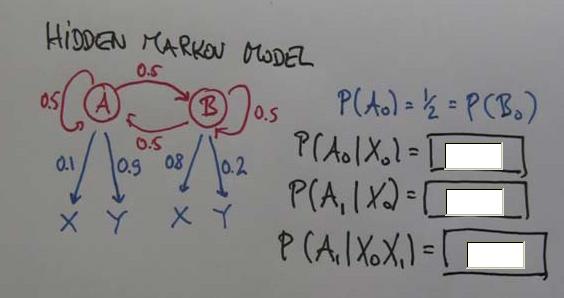 HIDDEN MARKOV MODEL
0.5
0.5 A B 0.5
0.5
0.1 0.9 0.8 0.2
X Y X Y
P(A₀) = ½ = P(B₀)
P(A₀|X₀) =
P(A₁|X₀) =
P(A₁|X₀X₁) =